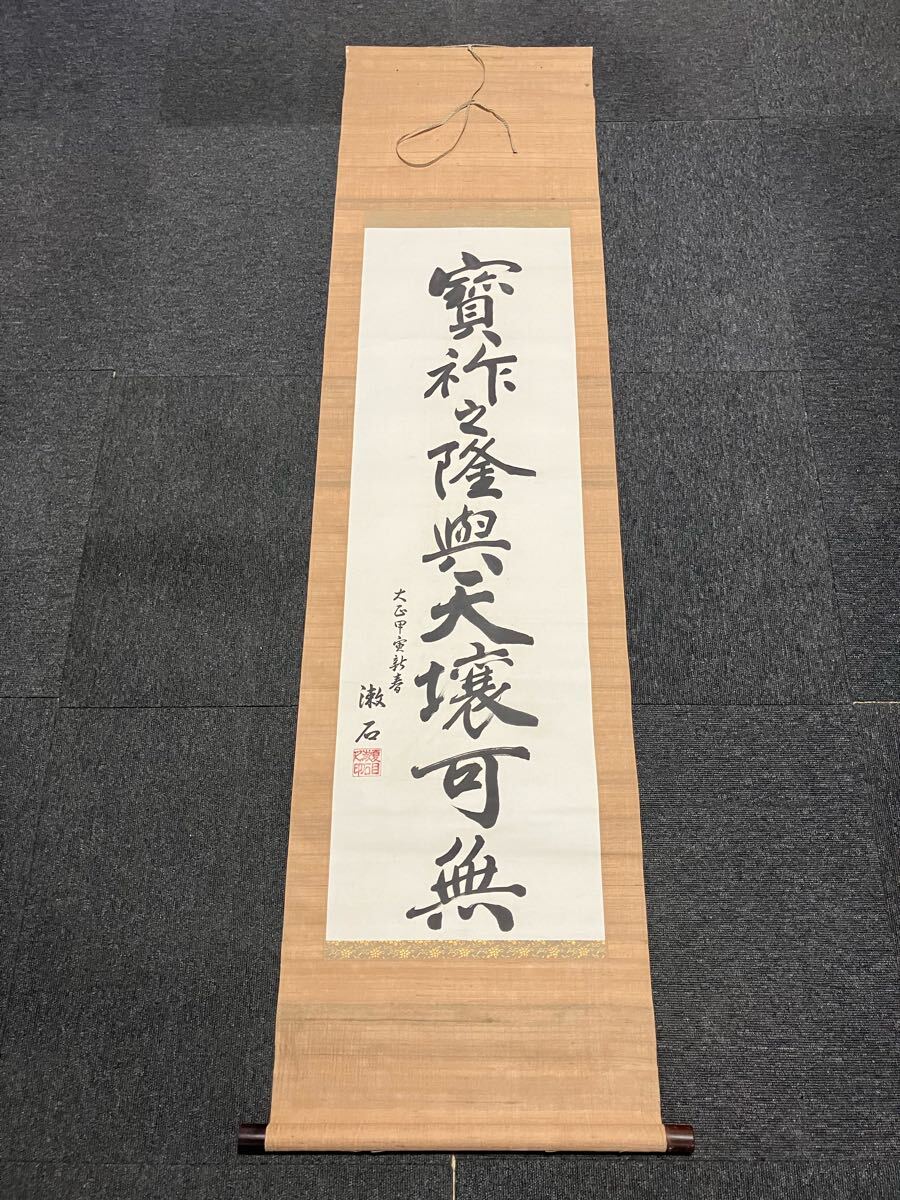 寳祚之隆與天壤可無
大正甲寅新春
漱石
夏目漱石之印